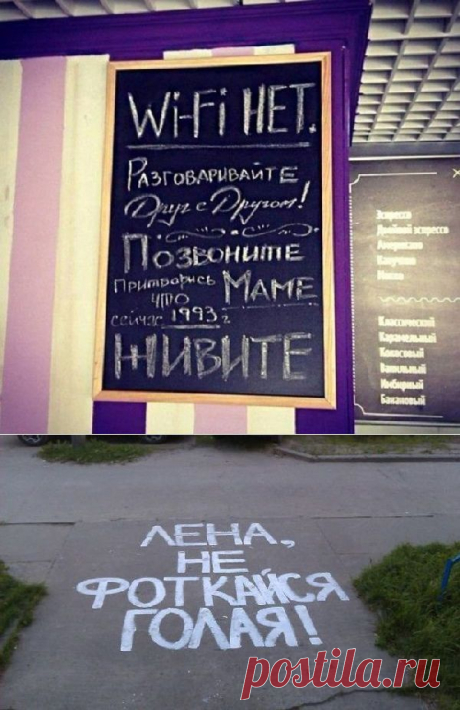 Wi-Fi НЕТ.
РАЗГОВАРИВАЙТЕ
Друг с Другом!
ПОЗВОНИТЕ
Притворись МАМЕ
ЧТО
сейчас 1993 г
ЖИВИТЕ
Эспрессо
Двойной эспрессо
Американо
Капучино
Мокко
Классический
Карамельный
Кокосовый
Ванильный
Имбирный
Банановый
ЛЕНА,
НЕ
ФОТКАЙСЯ
ГОЛАЯ!
postila.ru